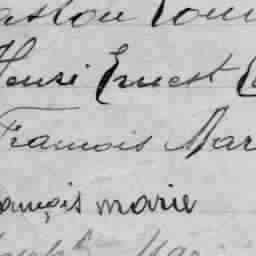 Gaston Loui
Henri Ernest
Francois Mar
ançois marie
Mari